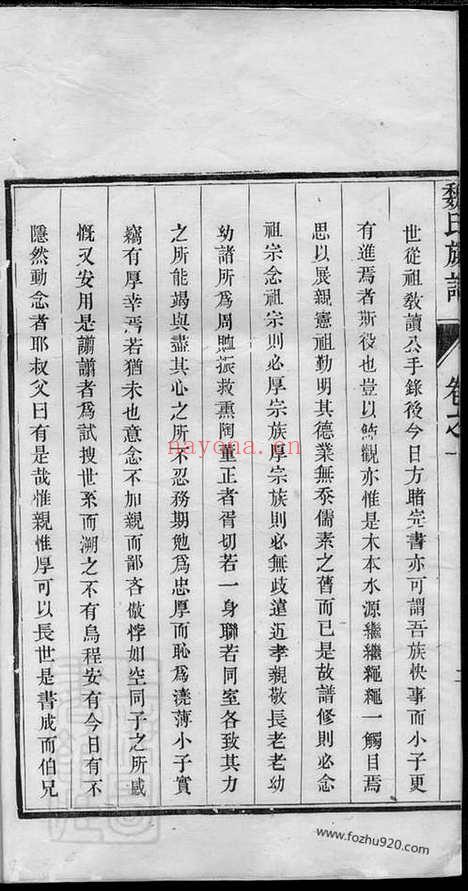 魏氏族譜
卷之一
世從祖敎讀公手錄後今日方睹完書亦可謂吾族快事而小子更
有進焉者斯役也豈以飾觀亦惟是木本水源繼繼繩繩一觸目焉
思以展親憲祖勤明其德業無忝儒素之舊而已是故譜修則必念
祖宗念祖宗則必厚宗族厚宗族則必無歧遠近孝親敬長老老幼
幼諸所爲周賙振救熏陶董正者胥切若一身聯若同室各致其力
之所能竭與盡其心之所不忍務期勉爲忠厚而恥爲澆薄小子實
竊有厚幸焉若猶未也意念不加親而鄙吝傲悖如空同子之所感
慨又安用是譾譾者爲試搜世系而溯之不有烏程安有今日有不
隱然動念者耶叔父曰有是哉惟親惟厚可以長世是書成而伯兄
nayona.cn
www.fozhu920.com